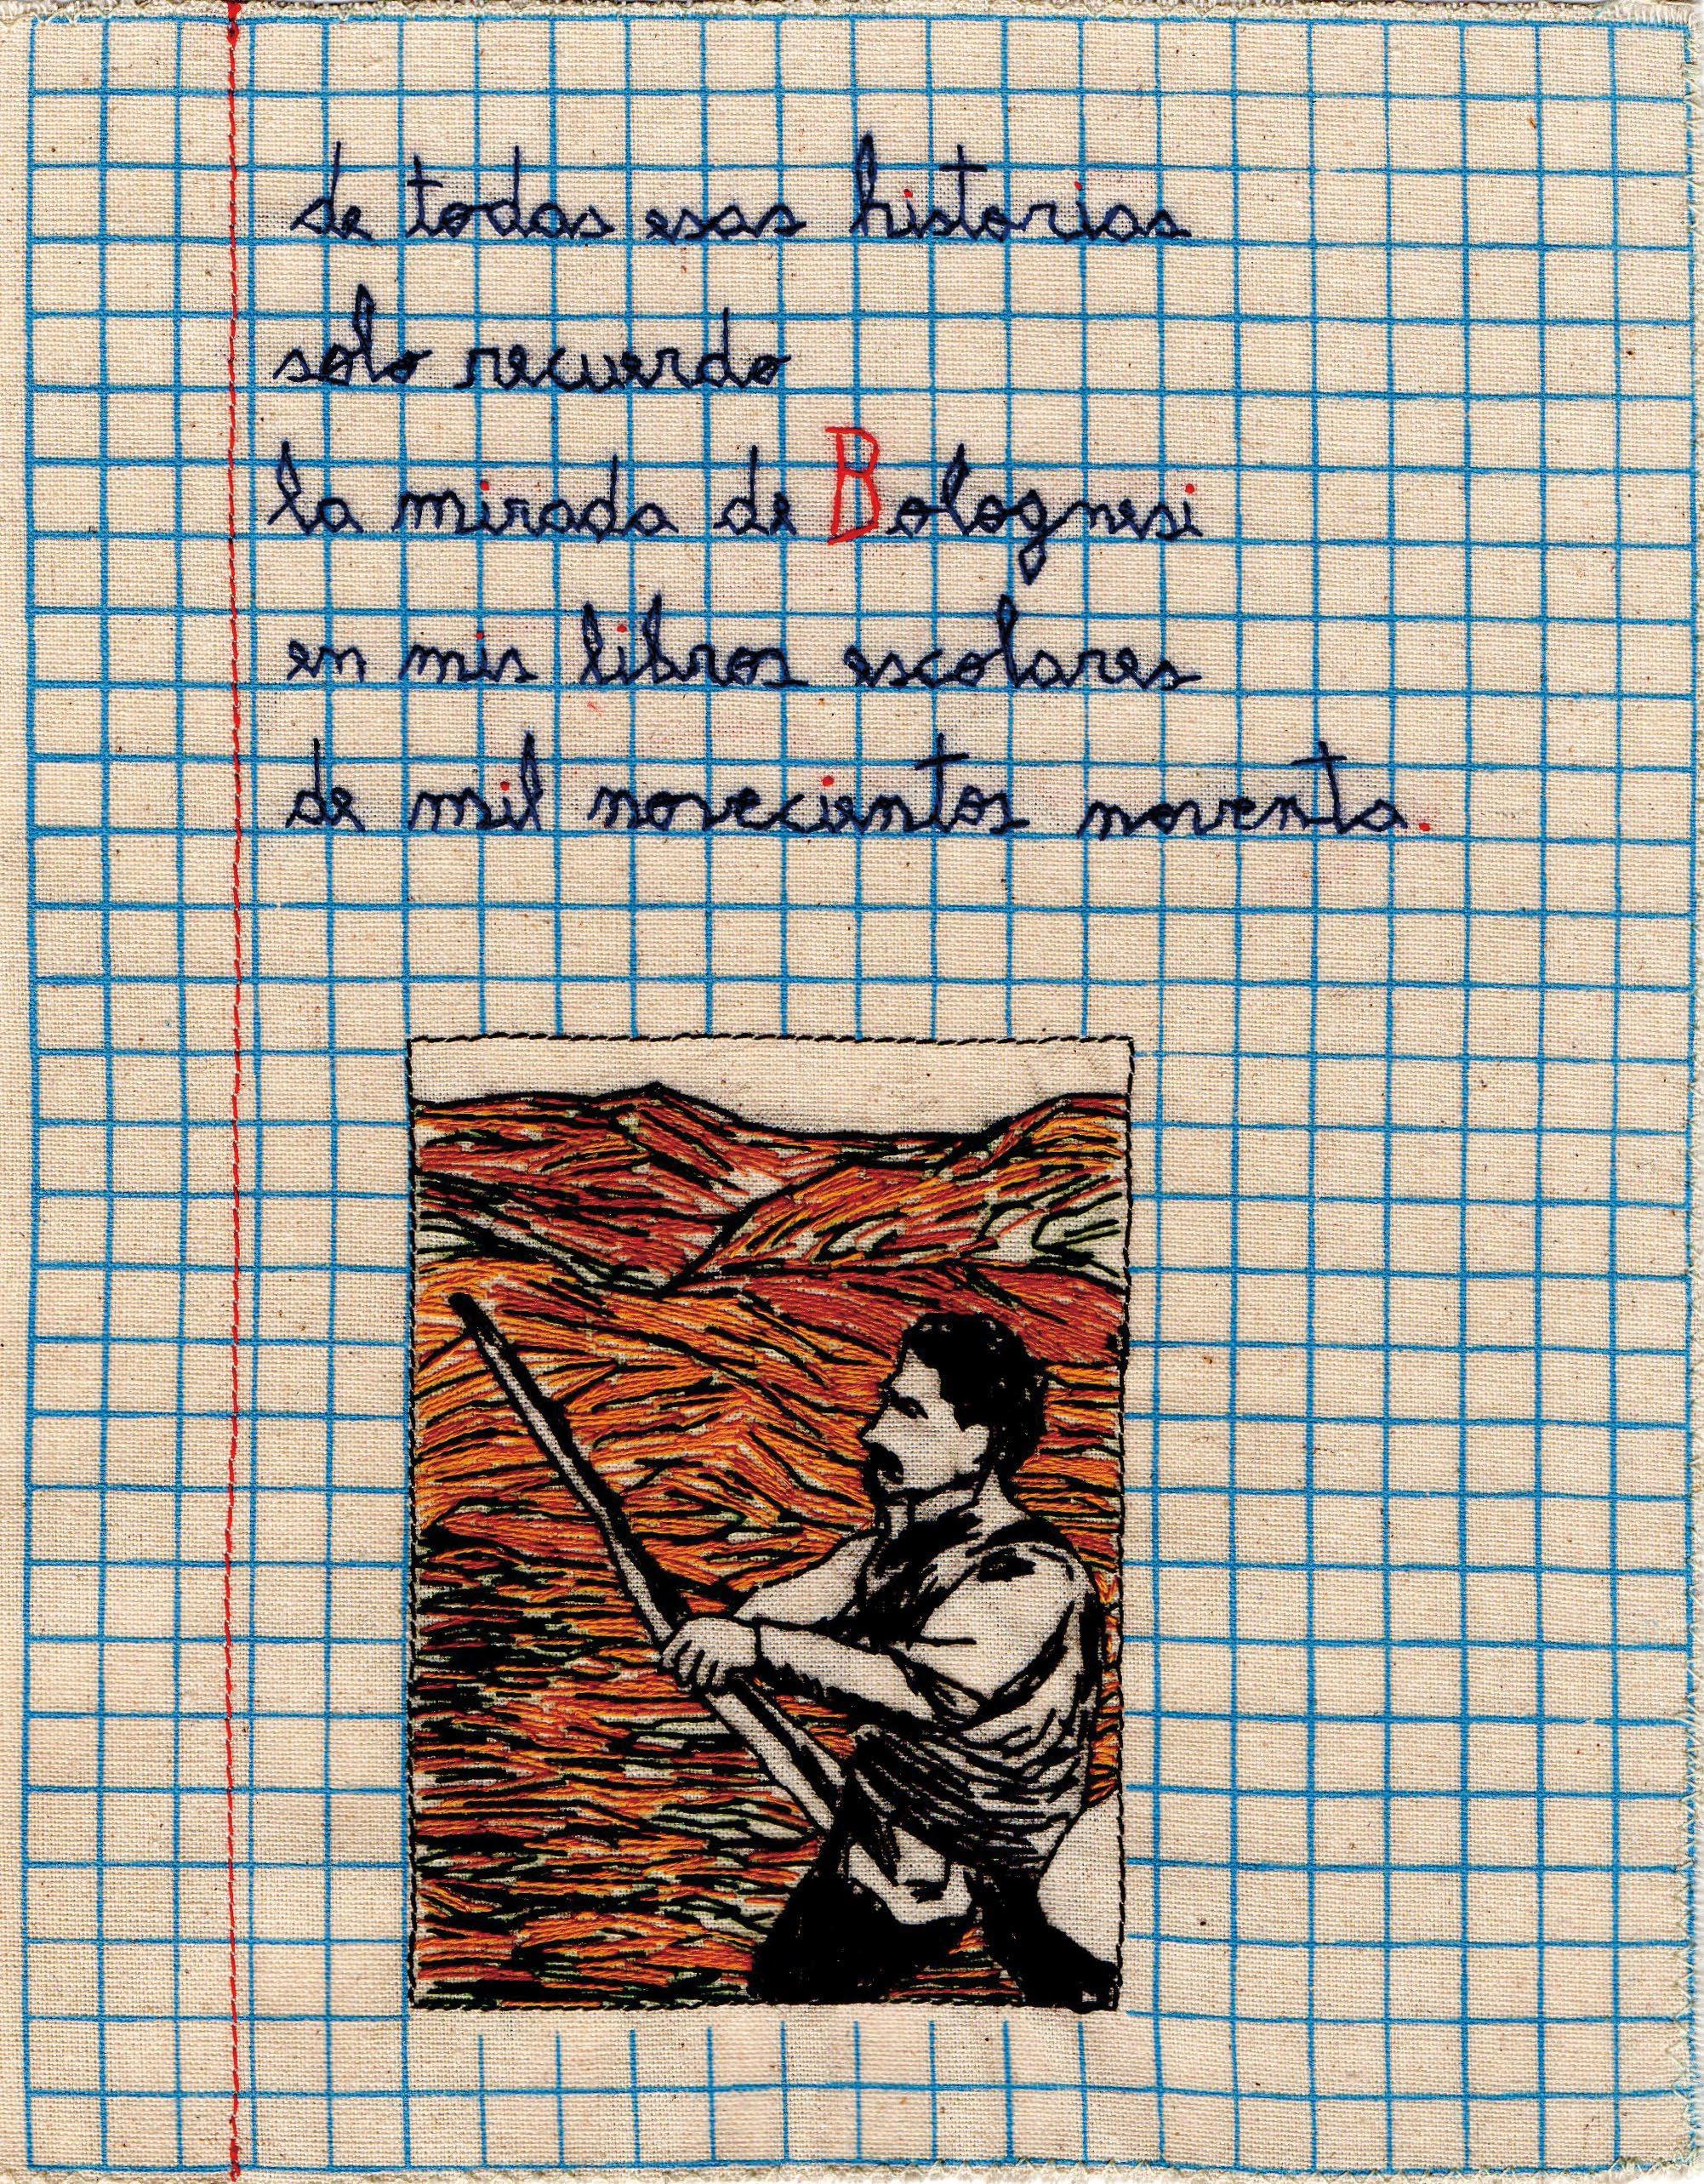 de todas esas historias
solo recuerdo
la mirada de Bolognesi
en mis libros escolares
de mil novecientos noventa.